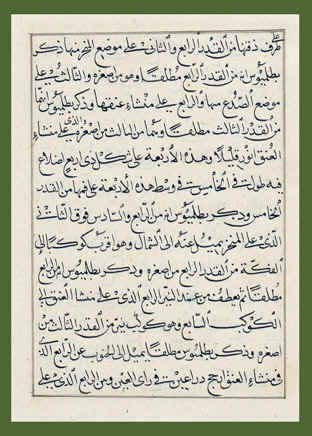 طرف ذقنها من القدر الرابع والثاني على موضع المنخر منها ذكر
بطلميوس انه من القدر الرابع مطلقا وهو من اصغره والثالث على
موضع الصدغ منها والرابع على منشاء عنقها وذكر بطلميوس انهما
من القدر الثالث مطلقا وهما من الثالث من اصغره على منشاء
العنق انور قليلا وهذه الاربعة على شكل ذي اربع اضلاع
فيه طول والخامس في وسط هذه الاربعة على فمها من القدر
الخامس وذكر بطلميوس انه من الرابع والسادس فوق الثاني
الذي على المنخر يميل عنه الى الشمال وهو اقرب كوكب الى
الفكة من القدر الرابع من اصغره وذكر بطلميوس انه من الرابع
مطلقا ثم ينعطف من عند النير الرابع الذي على منشا العنق الى
الكوكب السابع وهو كوكب نير من القدر الثالث من
اصغره وذكر بطلميوس مطلقا يميل الى الجنوب عن الرابع الذي
في منشاء العنق ارجح ذراعين في راى العين ومن الرابع الذي على